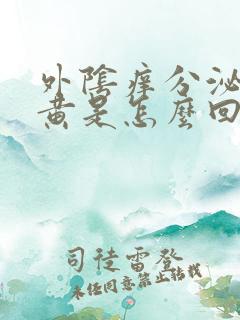 外陰癢分泌
黃是怎麼回
司徒雷登
未经同意禁止转载